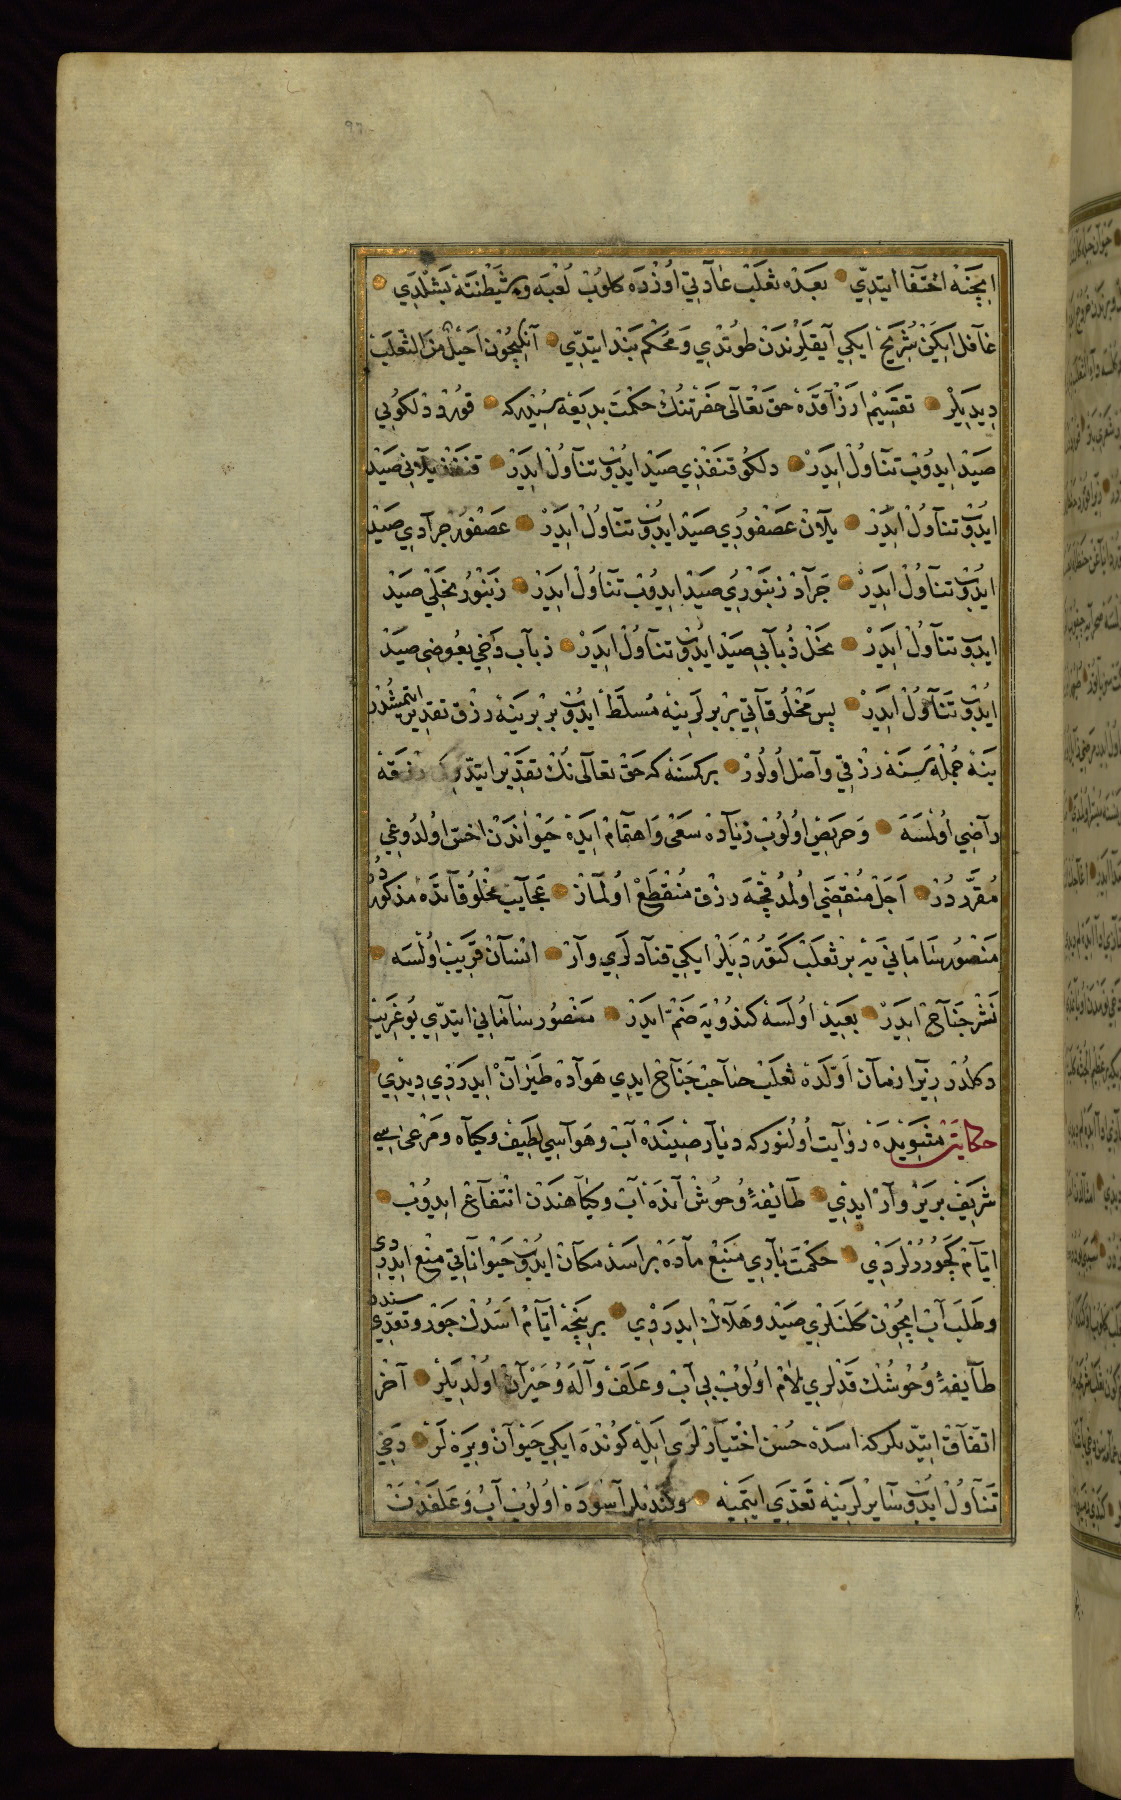 ايچنه اختفا ايتدي بعده ثعلب عادتي اوزره كلوب لعبه و شيطنته بشلدي
غافل ايكن شريح ايكي ايقلرندن طوتدي و محكم بند ايتدي آنكيچون احيل من الثعلب
ديديلر تقسيم ارزاقده حق تعالى حضرتنك حكمت بديعه سيدر كه قورد دلكويي
صيد ايدوب تناول ايدر دلكو قنفذي صيد ايدوب تناول ايدر قنفذ يلاني صيد
ايدوب تناول ايدر يلان عصفوري صيد ايدوب تناول ايدر عصفور جرادي صيد
ايدوب تناول ايدر جراد زنبوري صيد ايدوب تناول ايدر زنبور نحلي صيد
ايدوب تناول ايدر نحل ذبابي صيد ايدوب تناول ايدر ذباب دخي بعوضي صيد
ايدوب تناول ايدر پس مخلوقاتي بربرلرينه مسلط ايدوب بربرينه رزق تقدير ايتمشدر
ينه جمله سنه رزقي واصل اولور بركسنه كه حق تعالى نك تقدير ايتديكي رزقه
راضي اولمسه و حريص اولوب زياده سعى و اهتمام ايده حيواندن اخس اولدوغي
مقرردر اجل منقضي اولمدقچه رزق منقطع اولماز عجايب مخلوقاتده مذكوردر
منصور سامانييه بر ثعلب كتورديلر ايكي قنادلري وار انسان قريب اولسه
نشر جناح ايدر بعيد اولسه كندويه ضم ايدر منصور ساماني ايتدي بو غريب
دكلدر زيرا زمان اولده ثعلب صاحب جناح ايدي هواده طيران ايدردي ديدي
حكايت مثنويده روايت اولنور كه ديار صينده آب و هواسي لطيف و كياه و مرعى سي
شريف بر ير وار ايدي طائفۀ وحوش آنده آب و كياهندن انتفاع ايدوب
ايام كچوررلردي حكمت باري منبع ماده بر اسد مكان ايدوب حيواناتي منع ايدردي
و طلب آب ايچون كلنلري صيد و هلاك ايدردي بر نيچه ايام اسدك جور و تعديسندن
طائفۀ وحوشك قدلري لام اولوب بي آب و علف واله و حيران اولديلر آخر
اتفاق ايتديلر كه اسده حسن اختيارلري ايله كونده ايكي حيوان ويره لر دخي
تناول ايدوب سايرلرينه تعدي ايتميه و كنديلر آسوده اولوب آب و علفدن